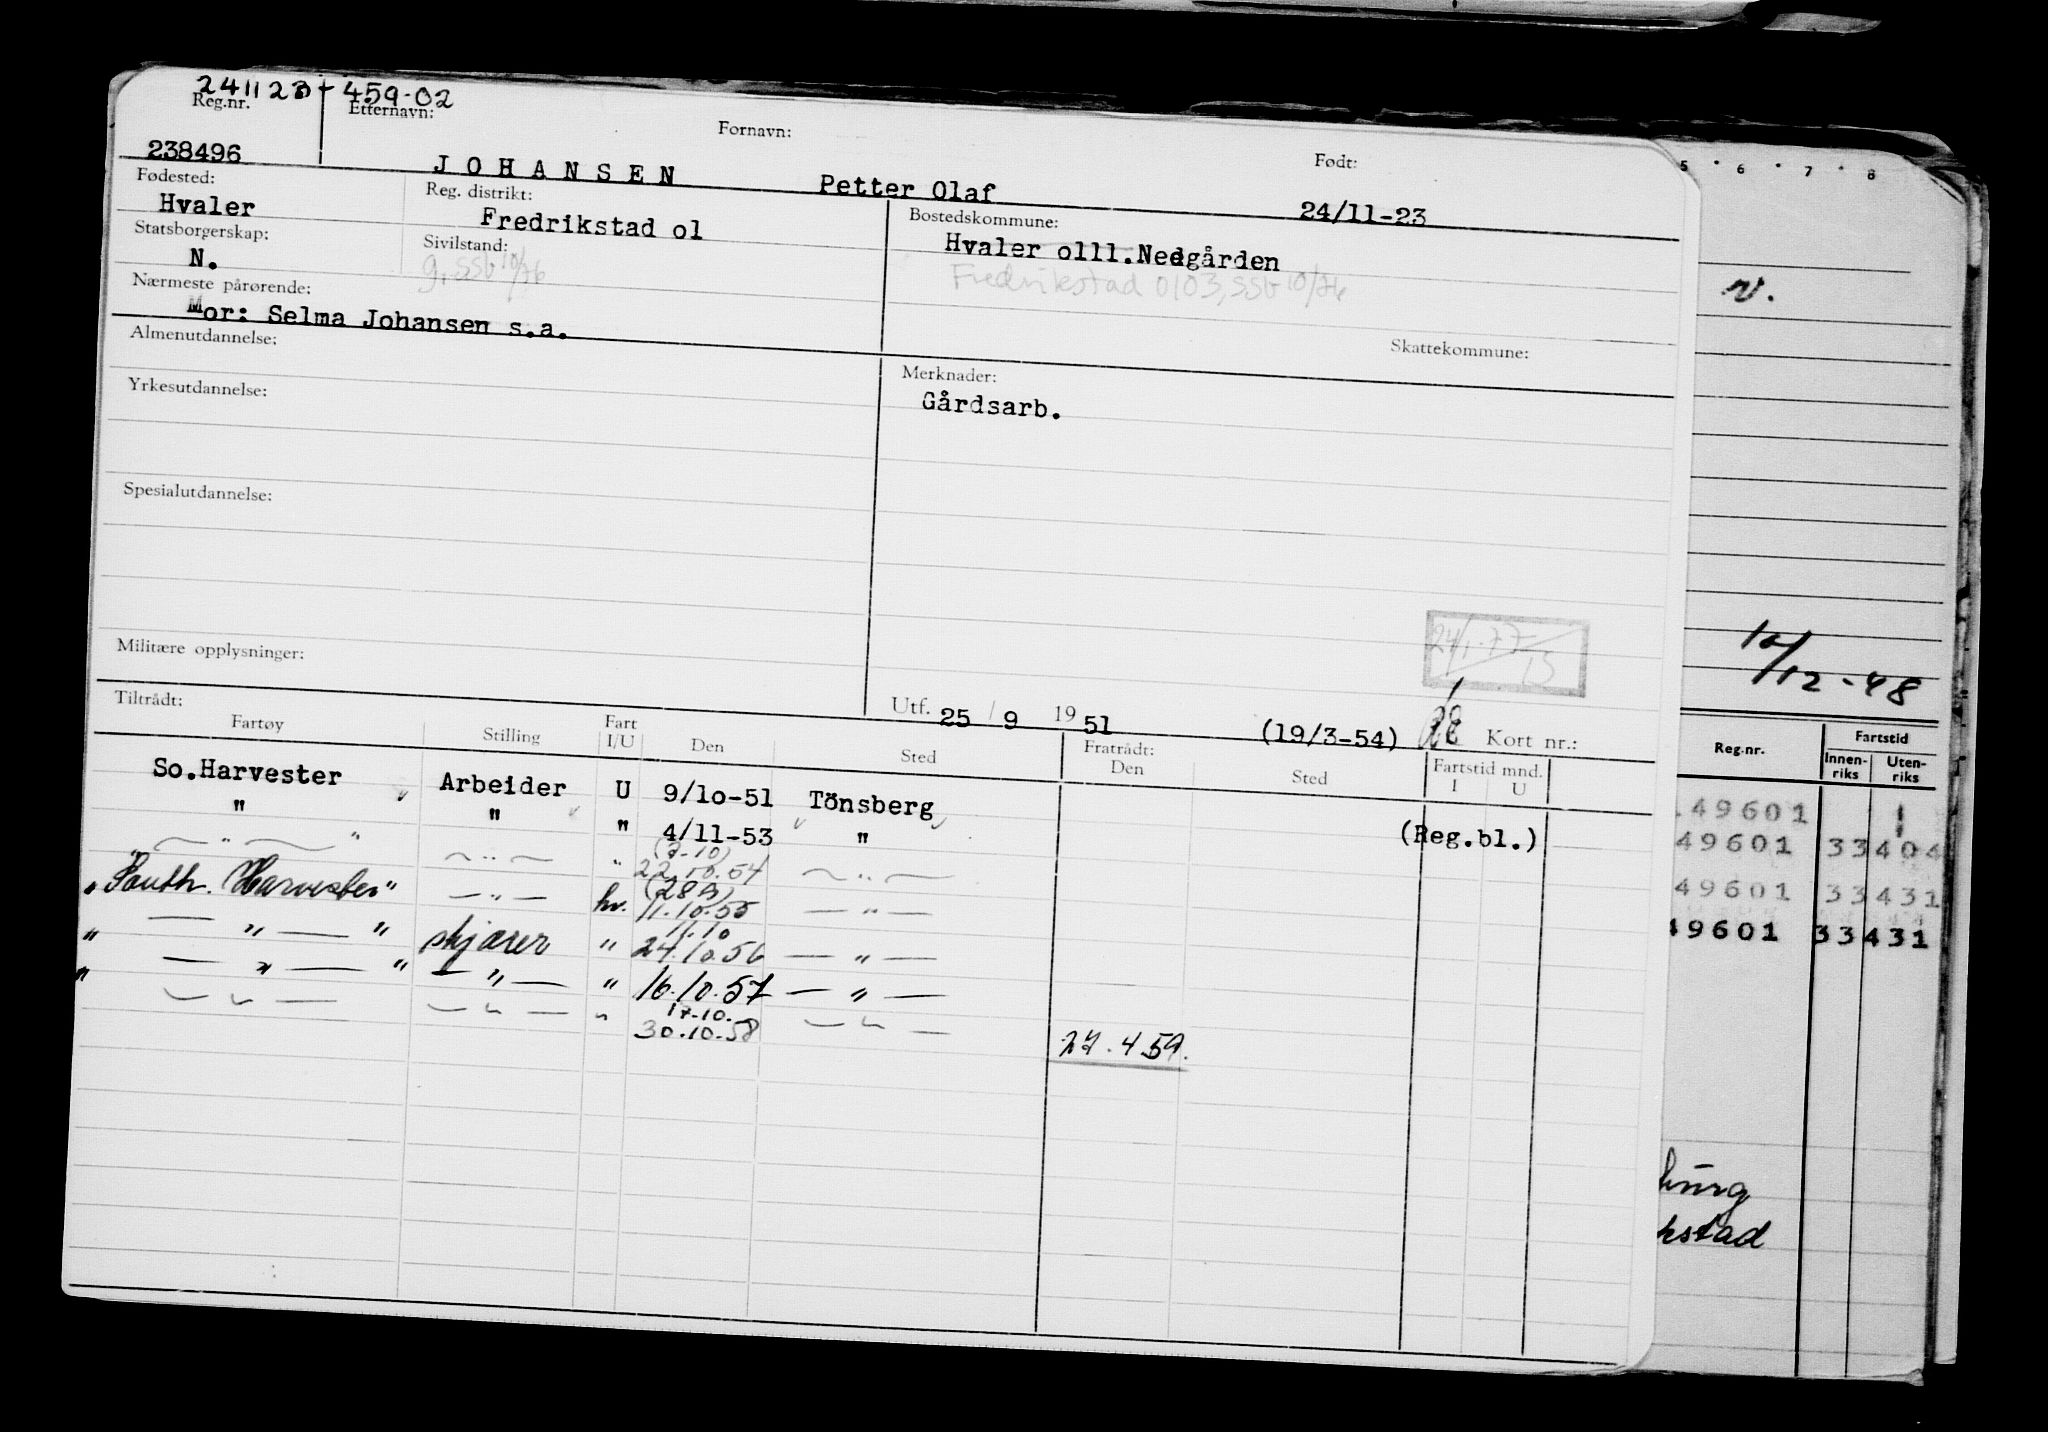 241123 + 459-02
Reg.nr. Etternavn: Fornavn: Født:
238496 JOHANSEN Petter Olaf 24/11-23
Fødested: Reg. distrikt: Bostedskommune:
Hvaler Fredrikstad ol Hvaler olll.Nedgården
Statsborgerskap: Sivilstand:
N. g, SSb 10/76 Fredrikstad 0103, SSb 10/76
Nærmeste pårørende:
Mor: Selma Johansen s.a.
Skattekommune:
Almenutdannelse: Merknader:
Gårdsarb.
Yrkesutdannelse:
Spesialutdannelse:
24/1-77/15
Militære opplysninger:
Utf. 25 / 9 19 51 (19/3-54) Kort nr.:
Tiltrådt: Fratrådt:
Fartøy Stilling Fart I/U Den Sted Den Sted Fartstid mnd. I U
So.Harvester Arbeider U 9/10-51 Tönsberg
" " " 4/11-53 " (Reg.bl.)
" — " — " — " — " (7-10) 22.10.54 — " —
"South. Harvester" — " — hv. (28/9) 11.10.55 — " —
" — " — " skjærer " 11.10 24.10.56 — " —
" — " — " — " — " 16.10.57 — " —
— " — — " — " 17.10. 30.10.58 — " —
27.4.59.
5 6 7 8
v.
10/12-48
Reg.nr. Fartstid
Innenriks Utenriks
49601
49601 33404
49601 33431
49601 33431
burg
kstad